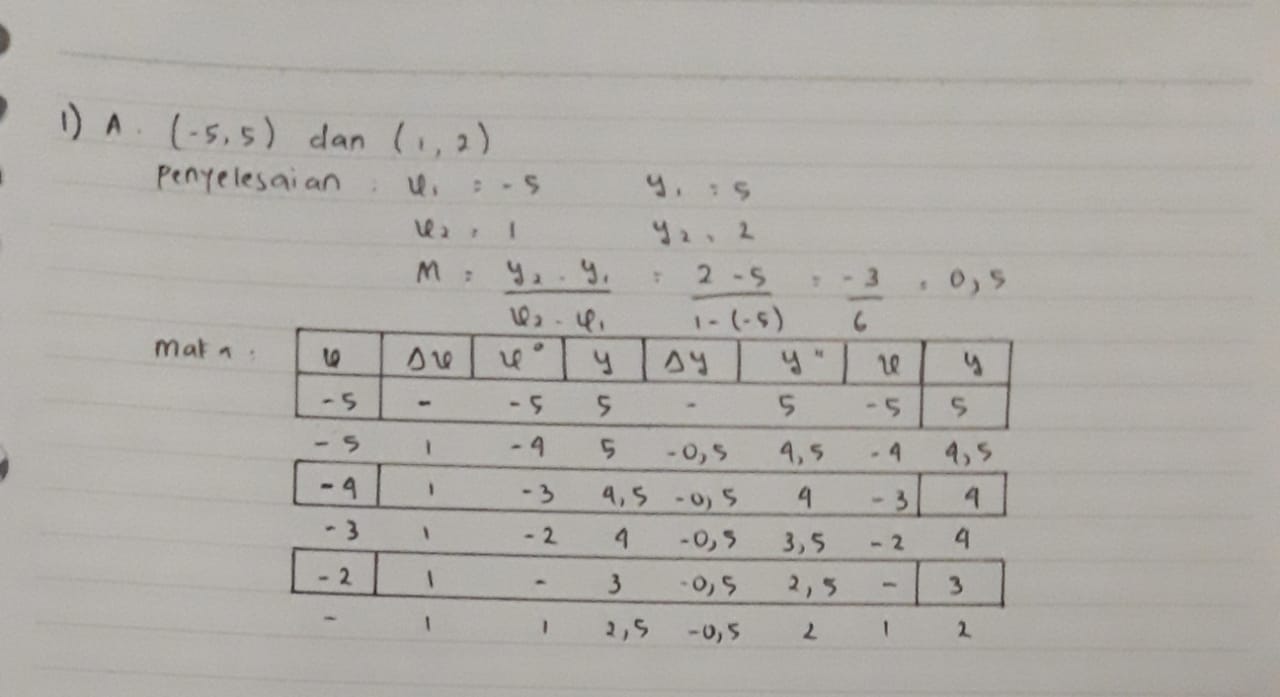 1) A. (-5,5) dan (1,2)
Penyelesaian : x₁ = -5 y₁ = 5
x₂ = 1 y₂ = 2
M = y₂ - y₁ / x₂ - x₁ = 2 - 5 / 1 - (-5) = -3 / 6 = 0,5
maka :
x Δx x° y Δy y" x y
-5 - -5 5 - 5 -5 5
-5 1 -4 5 -0,5 4,5 -4 4,5
-4 1 -3 4,5 -0,5 4 -3 4
-3 1 -2 4 -0,5 3,5 -2 4
-2 1 - 3 -0,5 2,5 - 3
- 1 1 2,5 -0,5 2 1 2